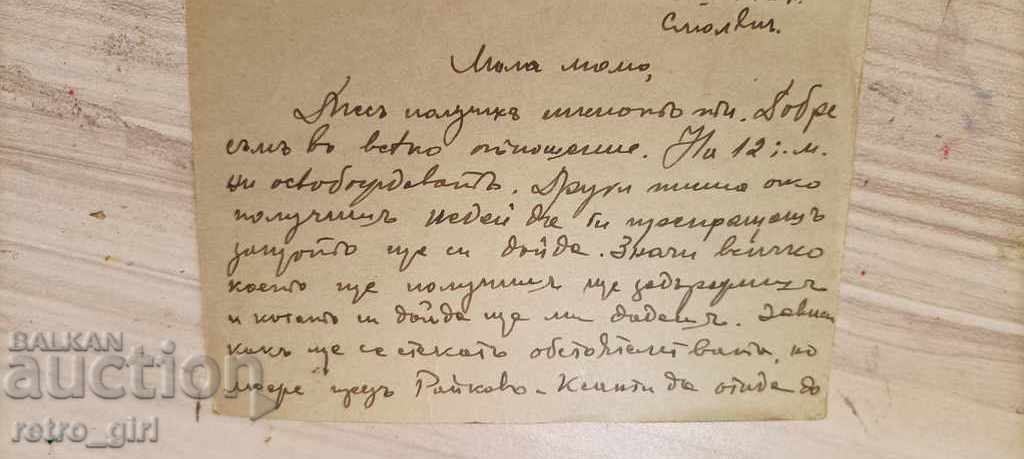 Смолянъ.
Мила мамо,
Днесъ получихъ писмото ти. Добре
съмъ во всѣко отношение. На 12 т.м.
ни освобождаватъ. Други писма ако
получишъ недей ги препращашъ
защото ще си дойда. Значи всичко
което ще получишъ ще задържишъ
и когато си дойда ще ми дадешъ. Зависи
какъ ще се стекатъ обстоятелствата, но
може презъ Райково - да отида до
BALKAN
auction
retro_girl